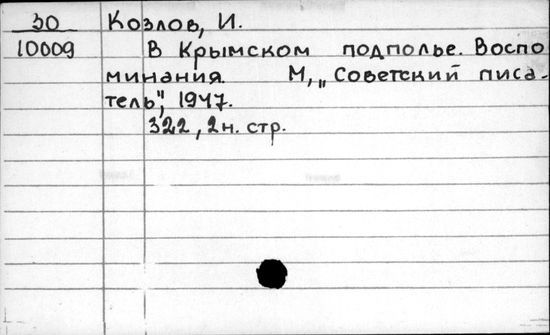 30 Козлов, И.
10009 В Крымском подполье. Воспо-
минания. М, „Советский писа-
тель", 1947.
322, 2 н. стр.